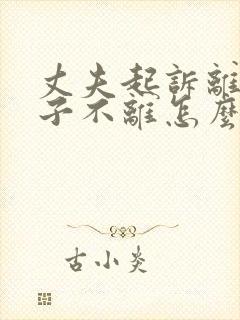 丈夫起訴離
子不離怎麼
古小炎